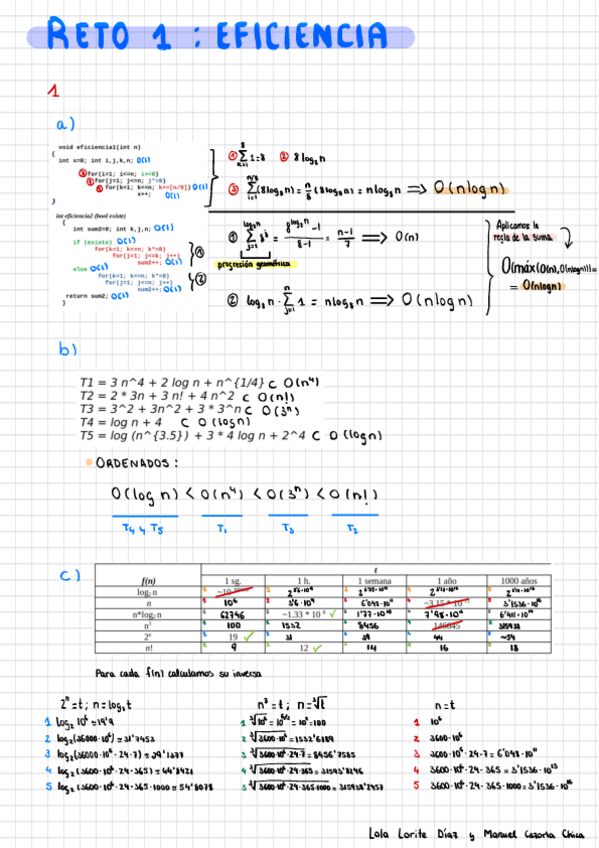 RETO 1 : EFICIENCIA
1
a)
void eficiencia1(int n)
{
int x=0; int i,j,k,n; O(1)
③for(i=1; i<=n; i+=8)
②for(j=1; j<=n; j*=8)
①for(k=1; k<=n; k+=(n/8)) O(1)
x++; O(1)
}
① 8∑k=1 1=8 ② 8 log₈ n
③ n/8∑i=1 (8log₈n) = n/8 (8log₈n) = nlog₈n ⟹ O(nlogn)
int eficiencia2 (bool existe)
{
int sum2=0; int k,j,n; O(1)
if (existe) O(1)
for(k=1; k<=n; k*=8)
for(j=1; j<=k; j++)
sum2++; O(1)
①
else O(1)
for(k=1; k<=n; k*=8)
for(j=1; j<=n; j++)
sum2++; O(1)
②
return sum2; O(1)
}
① log₈n∑j=1 8ʲ = 8^log₈n -1 / 8-1 = n-1/7 ⟹ O(n)
progresión geométrica
② log₈n · n∑j=1 1 = nlog₈n ⟹ O(nlogn)
Aplicamos la
regla de la suma
O(máx(O(n),O(nlogn)))=
= O(nlogn)
b)
T1 = 3 n^4 + 2 log n + n^{1/4} ⊂ O(n⁴)
T2 = 2 * 3n + 3 n! + 4 n^2 ⊂ O(n!)
T3 = 3^2 + 3n^2 + 3 * 3^n ⊂ O(3ⁿ)
T4 = log n + 4 ⊂ O(logn)
T5 = log (n^{3.5}) + 3 * 4 log n + 2^4 ⊂ O(logn)
ORDENADOS :
O(log n) < O(n⁴) < O(3ⁿ) < O(n!)
T4 y T5 T1 T3 T2
c)
t
f(n) 1 sg. 1 h. 1 semana 1 año 1000 años
log₂ n
n 10⁶ 3'6·10⁹ 6'048·10¹¹ 3'1536·10¹⁶
n*log₂ n 62746 ~1.33 * 10⁸ ✓ 1'77·10¹⁰ 7'98·10¹¹
n³ 100 1532 8456 146645 315938
2ⁿ 19 ✓ 31 39 44 ~54
n! 9 12 ✓ 14 16 18
Para cada f(n) calculamos su inversa
2ⁿ=t; n=log₂t
1 log₂ 10⁶ = 19'9
2 log₂(36000·10⁶) = 31'7453
3 log₂(36000·10⁶·24·7) = 39'1377
4 log₂(3600·10⁶·24·365) = 44'8421
5 log₂(3600·10⁶·24·365·1000) = 54'8078
n³=t; n=∛t
1 ∛10⁶ = 10^6/3 = 10²=100
2 ∛3600·10⁶ = 1532'6189
3 ∛3600·10⁶·24·7 = 8456'7585
4 ∛3600·10⁶·24·365 = 31593'8246
5 ∛3600·10⁶·24·365·1000 = 315938'2457
n=t
1 10⁶
2 3600·10⁶
3 3600·10⁶·24·7 = 6'048·10¹¹
4 3600·10⁶·24·365 = 3'1536·10¹³
5 3600·10⁶·24·365·1000 = 3'1536·10¹⁶
Lola Lorite Díaz y Manuel Cazorla Chica